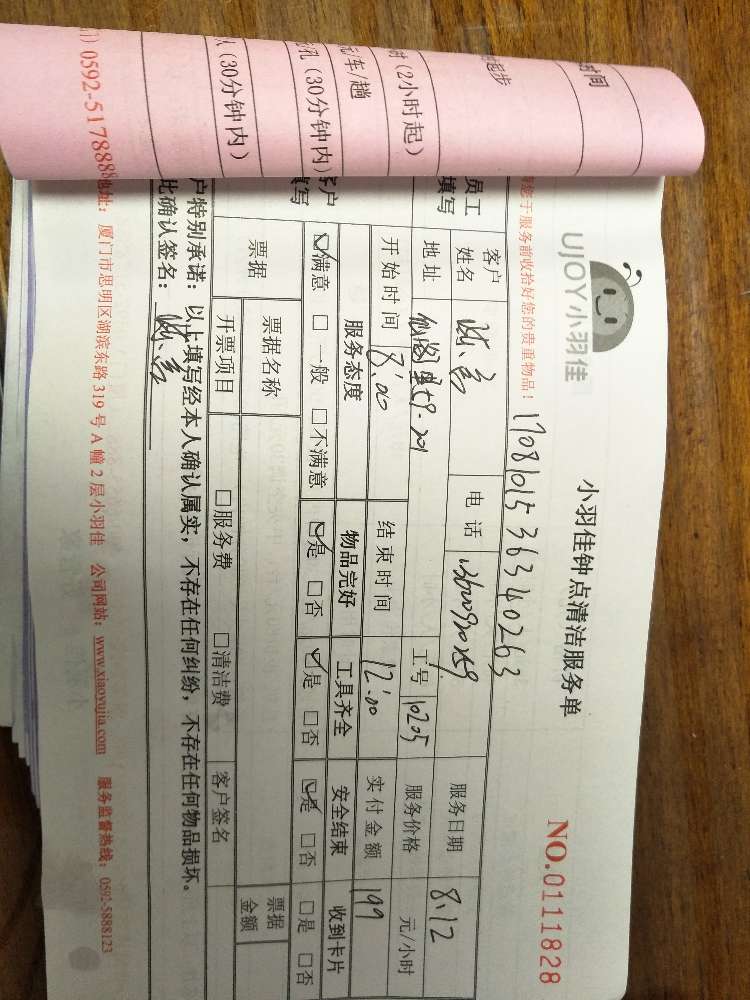 时间
起步
时（2小时起）
元/车/趟
（30分钟内）
（30分钟内）
0592-5178888
UJOY 小羽佳
小羽佳钟点清洁服务单
NO.0111828
您于服务前收拾好您的贵重物品！
1708101536340263
员工填写
客户姓名
电话
服务日期 8.12
地址
工号 10205
服务价格 元/小时
开始时间 8:00
结束时间 12:00
实付金额 199
客户填写
服务态度 物品完好 工具齐全 安全结束 收到卡片
☑满意 □一般 □不满意 ☑是 □否 ☑是 □否 ☑是 □否 □是 □否
票据
票据名称
票据金额
开票项目 □服务费 □清洁费 客户签名
户特别承诺：以上填写经本人确认属实，不存在任何纠纷，不存在任何物品损坏。
此确认签名：
地址：厦门市思明区湖滨东路319号A幢2层小羽佳 公司网站：www.xiaoyujia.com 服务监督热线：0592-5888123